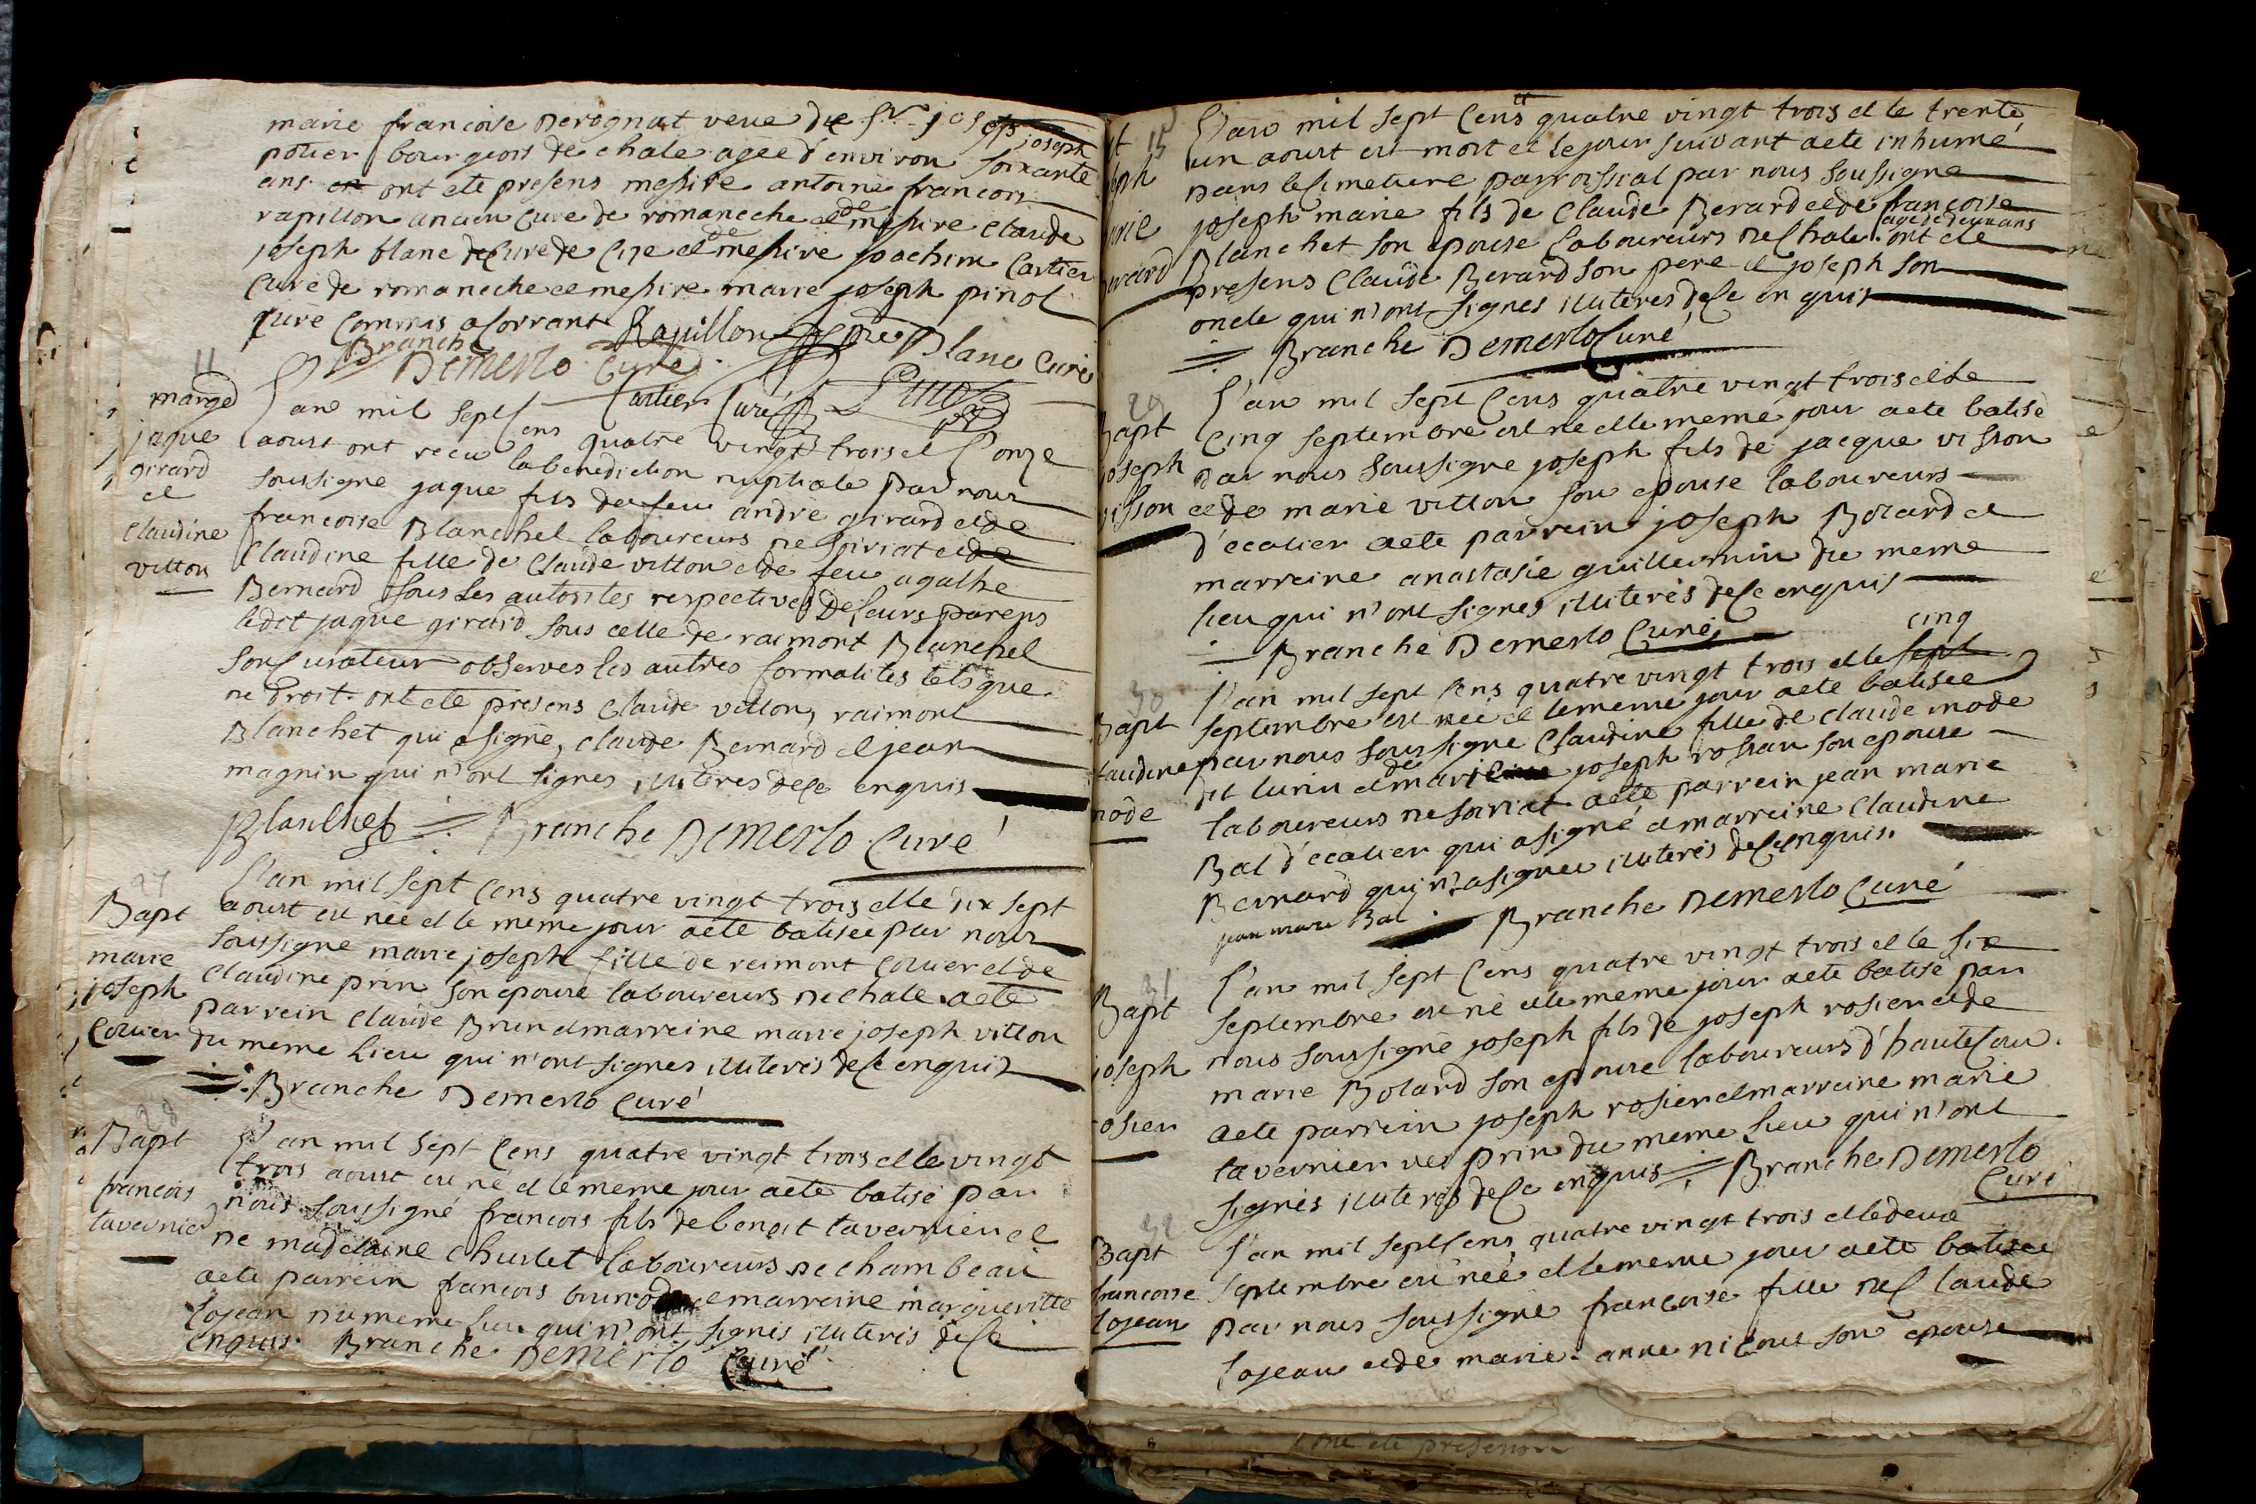 marie francoise derognat veue de Sr joseph joseph
potier bourgeois de chale agee d'environ soixante
ans ont ete presens messire antoine francois
rapillon ancien cure de romaneche et de messire claude
joseph blanc curé de cize et de messire joachim cartier
curé de romaneche et messire marie joseph pinol
curé commis a corrant Rapillon Blanc curé
Branche Demerlo curé
Cartier curé Pinol
11
mariage
jaque
girard
et
claudine
vitton
L'an mil sept cens quatre vingt trois et l'onze
aoust ont recu la benediction nuptiale par nous
soussigné jaque fils de feu andré girard et de
francoise Blanchet laboureurs de soiriat et de
claudine fille de claude vitton et de feu agathe
Bernard sous les autorites respectives de leurs parens
ledit jaque girard sous celle de raimont Blanchet
son curateur observes les autres formalites tels que
de droit ont ete presens claude vitton, raimont
Blanchet qui a signé, claude Bernard et jean
magnin qui n'ont signes illiteres de ce enquis
Blanchet Branche Demerlo Curé
27
Bapt
marie
joseph
Collier
L'an mil sept cens quatre vingt trois et le dix sept
aoust est née et le meme jour a ete batisee par nous
soussigné marie joseph fille de reimont Collier et de
claudine prin son epouse laboureurs de chale a ete
parrein claude Brun et marreine marie joseph vitton
du meme lieu qui n'ont signes illiteres de ce enquis
Branche Demerlo Curé
28
Bapt
francois
tavernier
L'an mil sept cens quatre vingt trois et le vingt
trois aoust est né et le meme jour a ete batisé par
nous soussigné francois fils de benoit tavernier et
de madelaine chuslet laboureurs de chambeau
a ete parrein francois brunod et marreine margueritte
lojean du meme lieu qui n'ont signes illiteres de ce
enquis Branche Demerlo Curé
15
joseph
marie
Berard
L'an mil sept cens quatre vingt trois et le trente
un aoust est mort et le jour suivant a ete inhumé
dans le cimetiere parroissial par nous soussigné
joseph marie fils de claude Berard et de francoise
Blanchet son epouse laboureurs de chale agé de deux ans ont ete
presens claude Berard son pere et joseph son
oncle qui n'ont signes illiteres de ce enquis
Branche Demerlo Curé
29
Bapt
joseph
visson
L'an mil sept cens quatre vingt trois et le
cinq septembre est né et le meme jour a ete batisé
par nous soussigné joseph fils de jacque visson
et de marie vitton son epouse laboureurs
d'ecalier a ete parrein joseph Botard et
marreine anastasie guillermin du meme
lieu qui n'ont signes illiteres de ce enquis
Branche Demerlo Curé
30
Bapt
claudine
mode
L'an mil sept cens quatre vingt trois et le sept cinq
septembre est née et le meme jour a ete batisee
par nous soussigné claudine fille de claude mode
dit lurin et de marie joseph rossan son epouse
laboureurs de soiriat a ete parrein jean marie
Bal d'ecalier qui a signé et marreine claudine
Bernard qui n'a signée illiteres de ce enquis.
jean marie Bal Branche Demerlo Curé
31
Bapt
joseph
rosier
L'an mil sept cens quatre vingt trois et le six
septembre est né et le meme jour a ete batisé par
nous soussigné joseph fils de joseph rosier et de
marie Botard son epouse laboureurs d'hautecour
a ete parrein joseph rosier et marreine marie
tavernier ves prin du meme lieu qui n'ont
signes illiteres de ce enquis Branche Demerlo
Curé
32
Bapt
francoise
lojean
L'an mil sept cens quatre vingt trois et le deux
septembre est née et le meme jour a ete batisee
par nous soussigné francoise fille de claude
lojean et de marie anne nicout son epouse